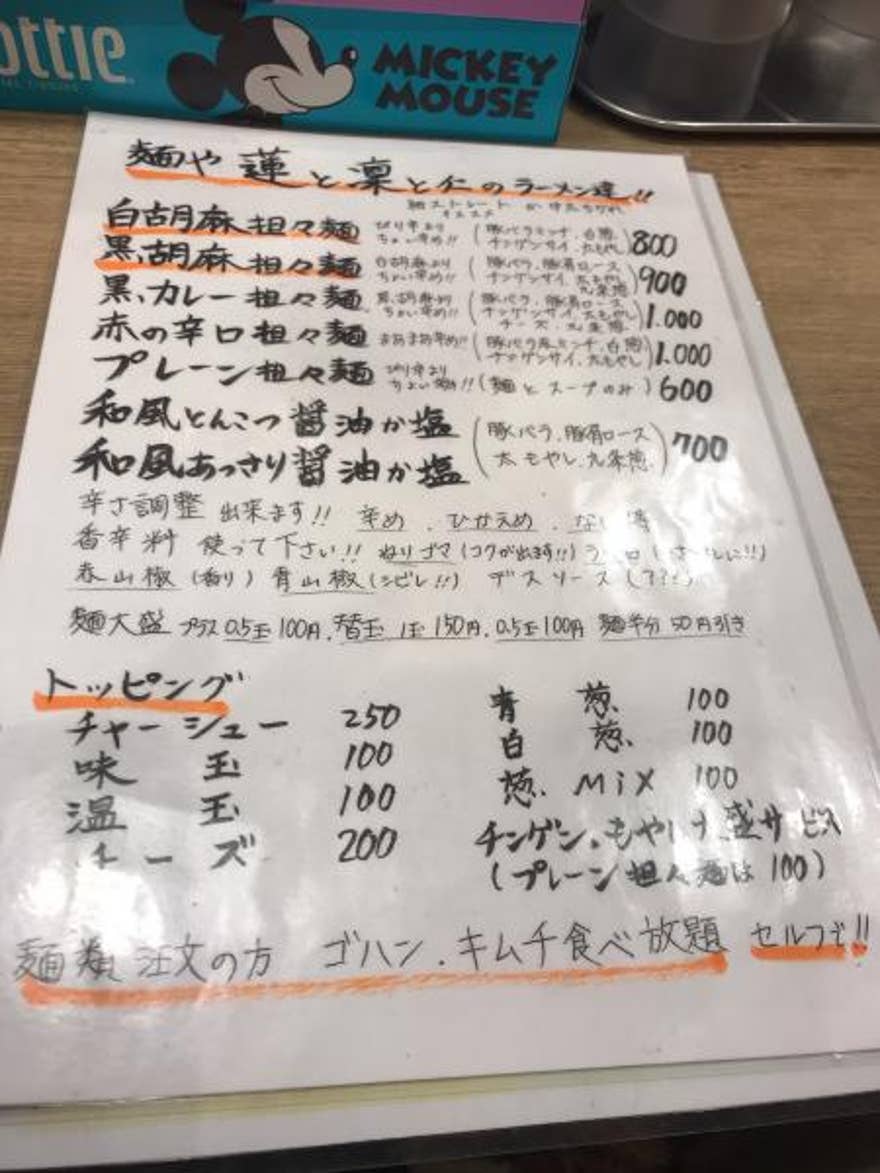 ottle
MICKEY
MOUSE
麺や 蓮と凛と仁のラーメン達!!
細ストレート か 中太ちぢれ
白胡麻担々麺 ちょい辛め!! (豚バラミンチ、白葱 チンゲンサイ、太もやし) 800
黒胡麻担々麺 白胡麻より ちょい辛め!! (豚バラ、豚肩ロース チンゲンサイ、太もやし 九条葱) 900
黒カレー担々麺 黒胡麻より ちょい辛め!! (豚バラ、豚肩ロース チンゲンサイ、太もやし チーズ、九条葱) 1.000
赤の辛口担々麺 まあまあ辛め!! (豚バラ ミンチ、白葱 チンゲンサイ、太もやし) 1.000
プレーン担々麺 ちょい辛め!! (麺とスープのみ) 600
和風とんこつ醤油か塩
和風あっさり醤油か塩 (豚バラ、豚肩ロース 太もやし、九条葱) 700
辛さ調整 出来ます!! 辛め、ひかえめ、なし等
香辛料 使って下さい!! ねりゴマ(コクが出ます!!)
赤山椒(香り) 青山椒(シビレ!!) デスソース(???)
麺大盛 プラス0.5玉100円、替玉 1玉150円、0.5玉100円 麺半分 50円引き
トッピング
チャーシュー 250
味玉 100
温玉 100
チーズ 200
青葱 100
白葱 100
葱MiX 100
チンゲン、もやし大盛サービス
(プレーン担々麺は100)
麺類注文の方 ゴハン、キムチ食べ放題 セルフで!!